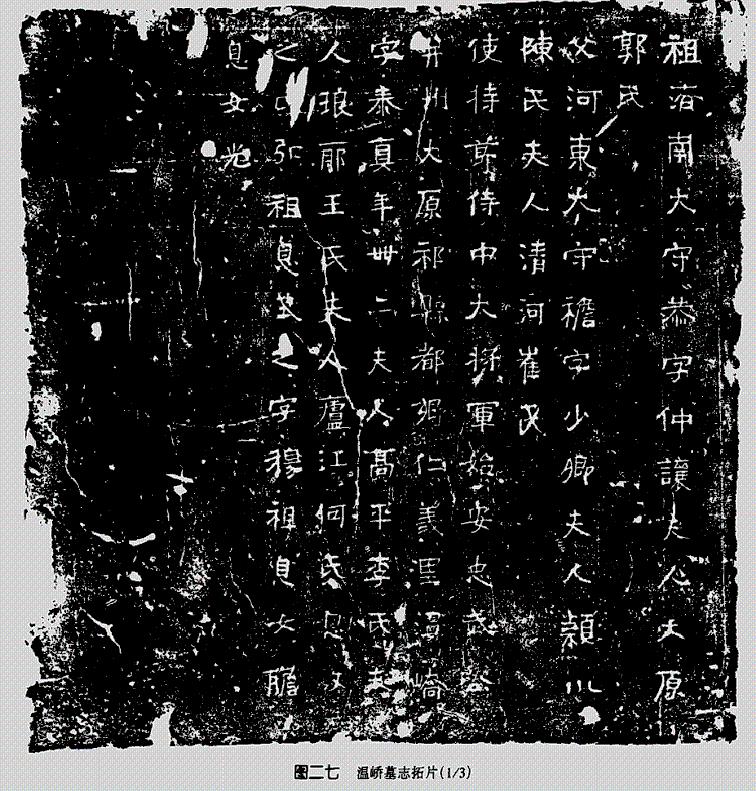 祖濟南大守恭字仲讓夫人大原
郭氏
父河東大守襜字少卿夫人潁川
陳氏夫人清河崔氏
使持節侍中大將軍始安忠武公
并州大原祁縣都鄉仁義里溫嶠
字泰真年卌二夫人高平李氏夫
人琅耶王氏夫人廬江何氏息放
之字弘祖息式之字穆祖息女膽
息女光
图二七 温峤墓志拓片(1/3)